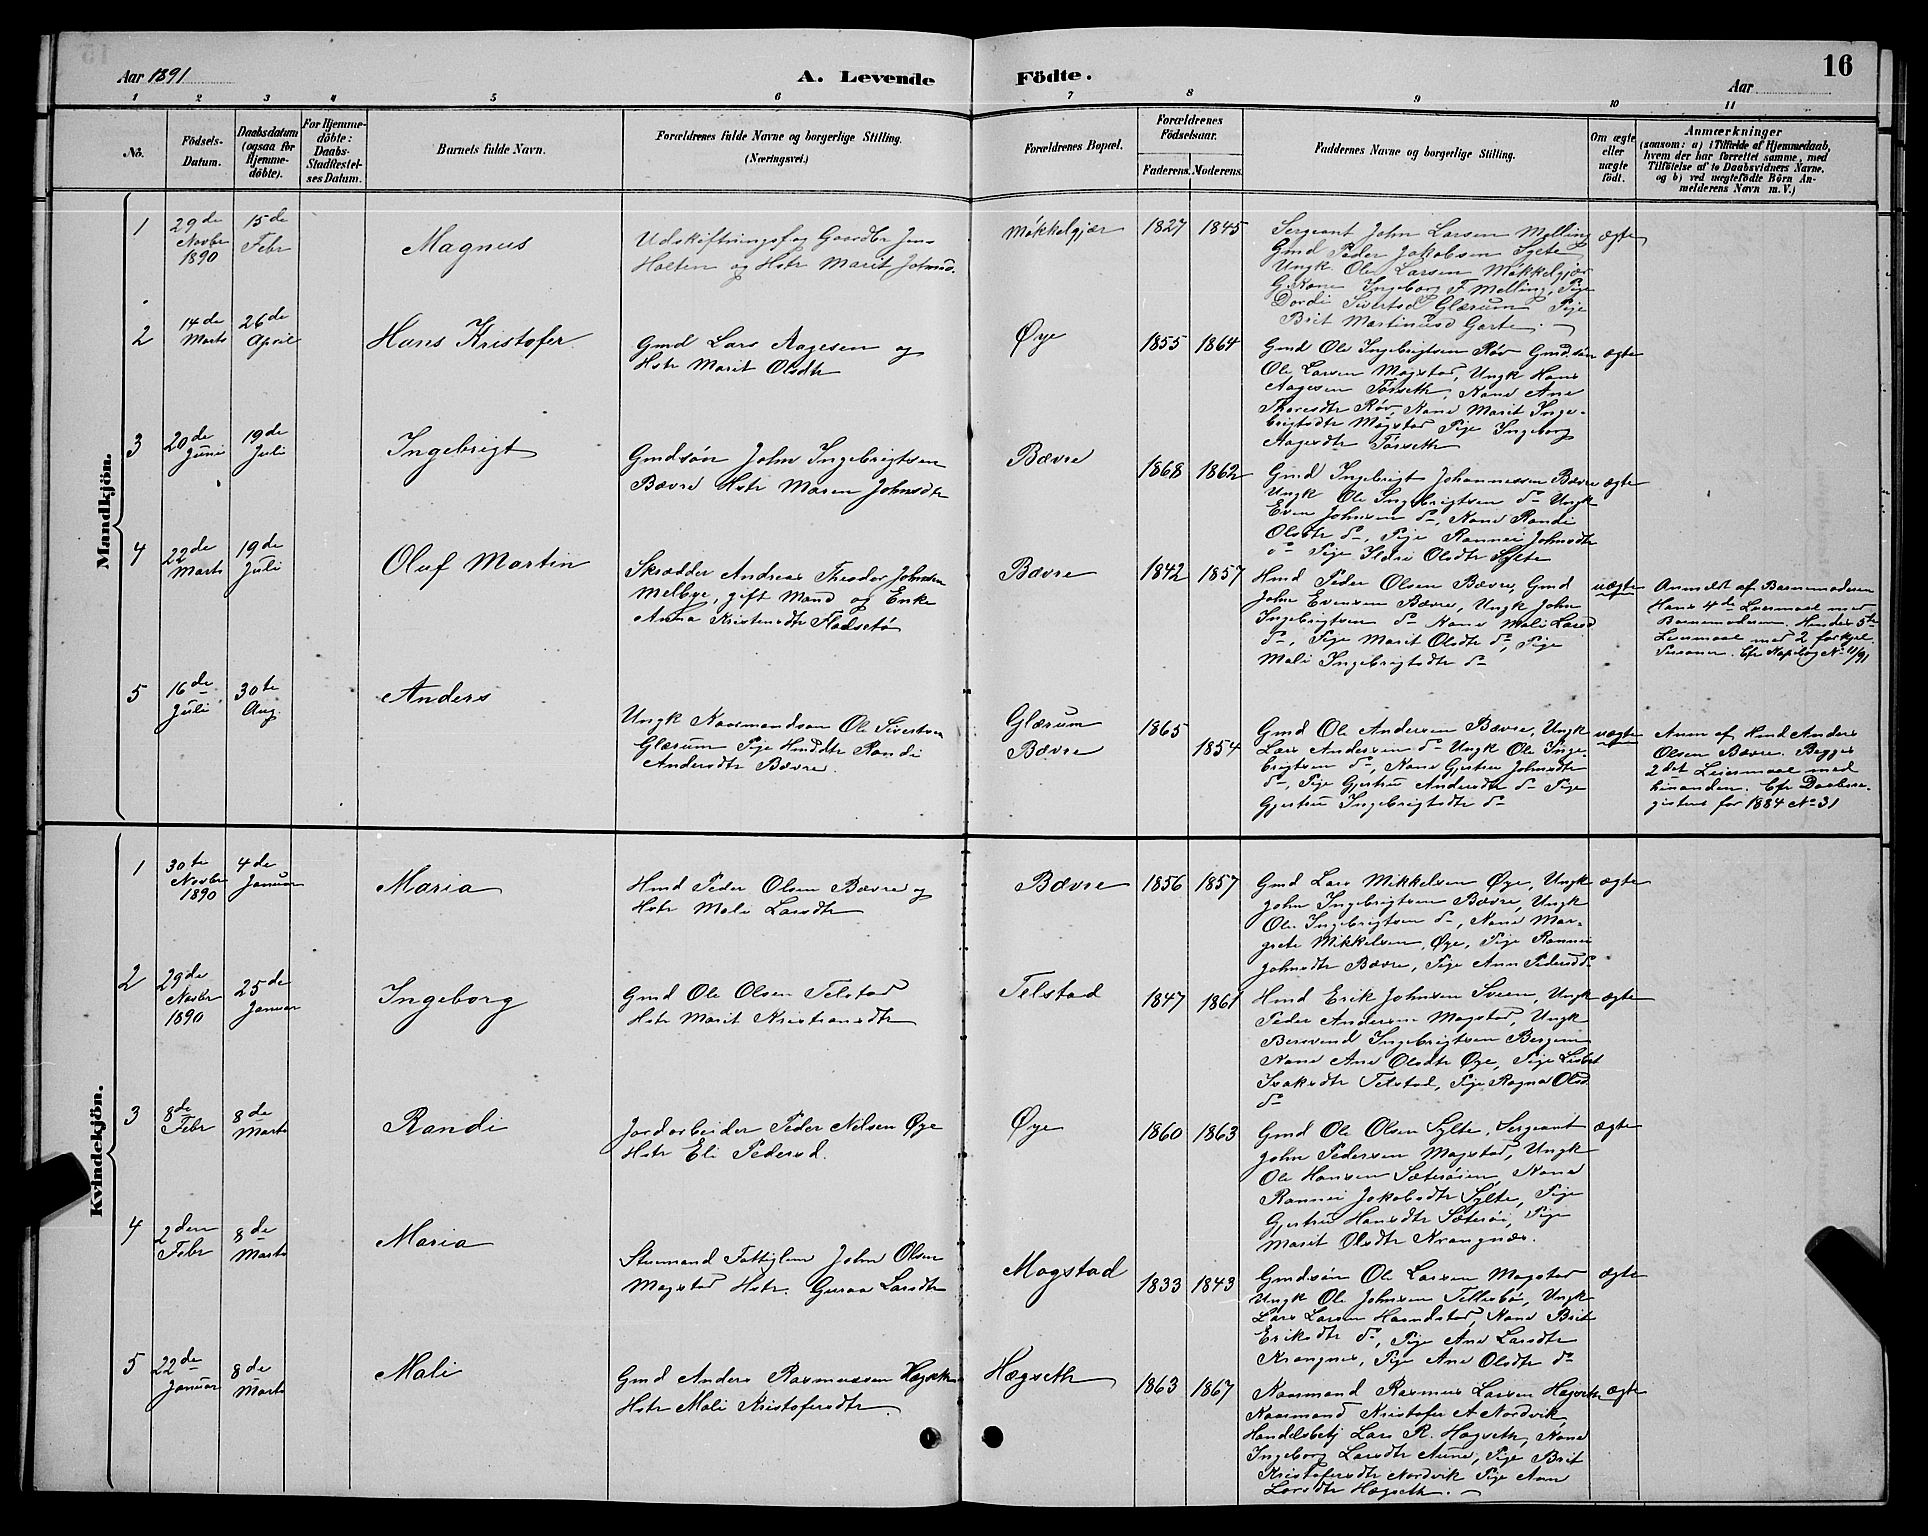 Aar 1891
A. Levende
Födte.
Aar
16
1
2
3
4
5
6
7
8
9
10
11
No.
Födsels-
Datum.
Daabsdatum
(ogsaa for
Hjemme-
döbte).
For Hjemme-
döbte:
Daabs-
Stadfæstel-
ses Datum.
Barnets fulde Navn.
Forældrenes fulde Navne og borgerlige Stilling.
(Næringsvei.)
Forældrenes Bopæl.
Forældrenes
Födselsaar.
Faderens. Moderens.
Faddernes Navne og borgerlige Stilling.
Om ægte
eller
uægte
födt.
Anmærkninger
(saasom: a) i Tilfælde af Hjemmedaab,
hvem der har forrettet samme, med
Tilföielse af to Daabsvidners Navne,
og b) ved uægtefödte Börn An-
melderens Navn m. V.)
Mandkjön.
1
29de
Novbr
1890
15de
Febr
Magnus
Udskiftningsf og Gaardbr Jens
Holten og Hstr Marit Johnsd.
Møkkelgjær
1827
1845
Sergeant John Larsen Melling
Gmd Peder Jakobsen Sylte
Ungk. Ole Larsen Møkkelgjær
G. Kone Ingeborg F Melling, Pige
Dordi Sivertsd Glærum Pige
Brit Martinusd Garte.
ægte
2
14de
Marts
26de
April
Hans Kristofer
Gmd Lars Aagesen og
Hstr Marit Olsdtr
Øye
1855
1864
Gmd Ole Ingebrigtsen Røv Gmdsøn
Ole Larsen Magstad, Ungk Hans
Aagesen Tørseth, Kone Ane
Thoresdtr Røv, Kone Marit Inge-
brigtsdtr Magstad Pige Ingeborg
Aagesdtr Tørseth
ægte
3
20de
Juni
19de
Juli
Ingebrigt
Gmdsøn John Ingebrigtsen
Bævre Hstr Maren Johnsdtr
Bævre
1868
1862
Gmd Ingebrigt Johannessen Bævre
Ungk Ole Ingebrigtsen do Ungk
Even Johnsen do, Kone Randi
Olsdtr do, Pige Rannei Johnsdtr
do Pige Ildri Olsdtr Sylte
ægte
4
22de
Marts
19de
Juli
Oluf Martin
Skrædder Andreas Theodor Johnsen
Melbye, gift Mand og Enke
Anna Kristensdtr Fladsetø
Bævre
1842
1857
Hmd Peder Olsen Bævre, Gmd
John Evensen Bævre, Ungk John
Ingebrigtsen do Kone Mali Larsd
do, Pige Marit Olsdtr do, Pige
Mali Ingebrigtsdtr do
uægte
Anmeldt af Barnemoderen
Hans 4de Leiermaal med
Barnemoderen. Hendes 5te
Leiermaal med 2 forskjel.
Personer. Cfr Kopibog No 11/91
5
16de
Juli
30te
Aug.
Anders
Ungk Kaarmandsøn Ole Sivertsen
Glærum Pige Hmddtr Randi
Andersdtr Bævre.
Glærum
Bævre
1865
1854
Gmd Ole Andersen Bævre, Ungk
Lars Andersen do Ungk Ole Inge-
brigtsen do, Kone Gjertru Johnsdtr
do, Pige Gjertru Andersdtr do Pige
Gjertru Ingebrigtsdtr do
uægte
Anm af Hmd Anders
Olsen Bævre. Begges
2det Leiermaal med
hinanden. Cfr Daabsre-
gisteret for 1884 No 31
Kvindekjön.
1
30te
Novbr
1890
4de
Januar
Maria
Hmd Peder Olsen Bævre og
Hstr Mali Larsdtr
Bævre
1856
1857
Gmd Lars Mikkelsen Øye, Ungk
John Ingebrigtsen Bævre, Ungk
Ole Ingebrigtsen do, Kone Mar-
grete Mikkelsen, Øye, Pige Rannei
Johnsdtr Bævre, Pige Ann Pedersd do
ægte
2
29de
Novbr
1890
25de
Januar
Ingeborg
Gmd Ole Olsen Telstad
Hstr Marit Kristiansdtr
Telstad
1847
1861
Hmd Erik Johnsen Sveen, Ungk
Peder Andersen Magstad, Ungk
Bersvend Ingebrigtsen Bergem
Kone Ane Olsdtr Øye, Pige Lisbet
Isaksdtr Telstad, Pige Ragna Olsd.
do
ægte
3
8de
Febr
8de
Marts
Randi
Jordarbeider Peder Nilsen Øye
Hstr Eli Pedersd.
Øye
1860
1863
Gmd Ole Olsen Sylte, Sergeant
John Pedersen Magstad, Ungk
Ole Hansen Sæterøien, Kone
Rannei Jakobsdtr Sylte, Pige
Gjertru Hansdtr Sæterøi, Pige
Marit Olsdtr Krangnæs.
ægte
4
2den
Febr
8de
Marts
Maria
Stuemand Fattiglem John Olsen
Magstad Hstr. Guraa Larsdtr
Magstad
1833
1843
Gmdsøn Ole Larsen Magstad
Ungk Ole Johnsen Tellesbø, Ungk
Lars Larsen Harndstad, Kone Brit
Eriksdtr do, Pige Ane Larsdtr
Krangnes, Pige Ane Olsdtr do
ægte
5
22de
Januar
8de
Marts
Mali
Gmd Anders Rasmussen Hægseth
Hstr Mali Kristofersdtr.
Hægseth
1863
1867
Kaarmand Rasmus Larsen Hægseth
Kaarmand Kristofer A Nordvik
Handelsbetj Lars R. Hægseth, Kone
Ingeborg Larsdtr Aune, Pige Brit
Kristofersdtr Nordvik Pige Ann
Larsdtr Hægseth.
ægte